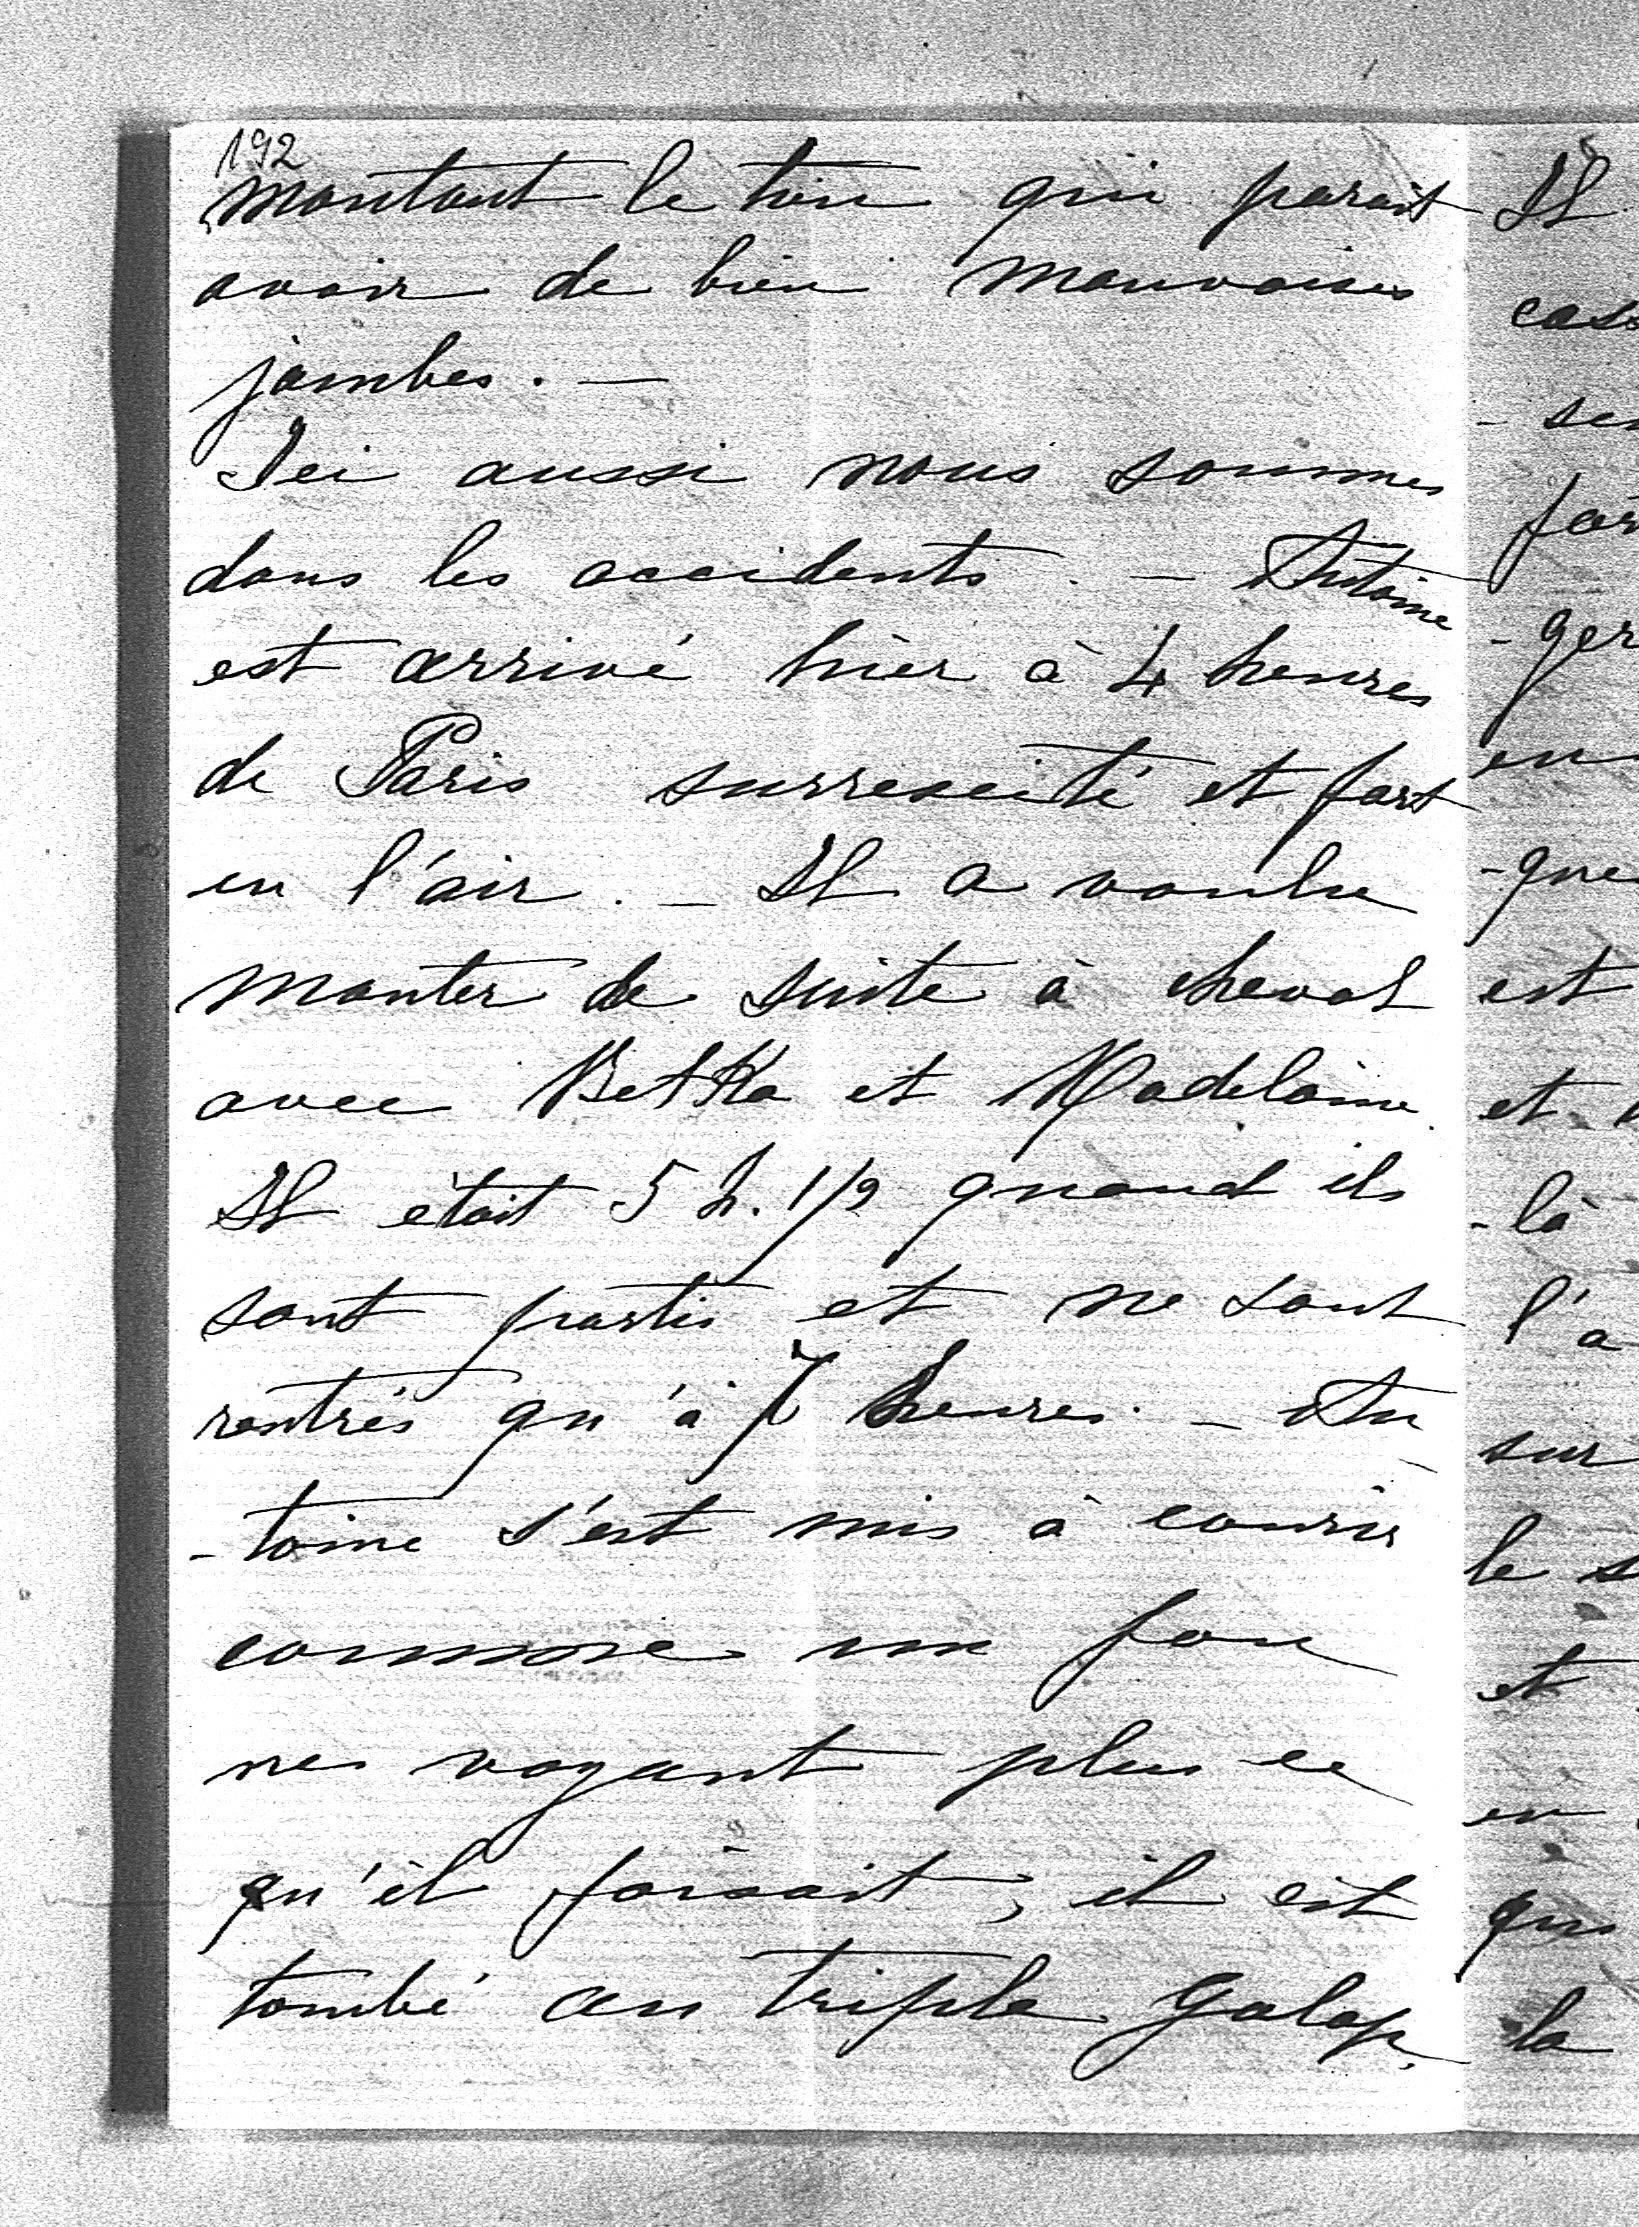 192
montant le tien qui parait
avoir de bien mauvaises
jambes. —
Ici aussi nous sommes
dans les accidents. — Antoine
est arrivé hier à 4 heures
de Paris surrexcité et fort
en l'air. — Il a voulu
monter de suite à cheval
avec Betka et Madelaine.
Il était 5 h. 1/2 quand ils
sont partis et ne sont
rentrés qu'à 7 heures. — An
-toine s'est mis à courir
comme un fou
ne voyant plus ce
qu'il faisait, il est
tombé au triple galop.
Il
-ger
est
et
-là
l'a
sur
le
et
en
la